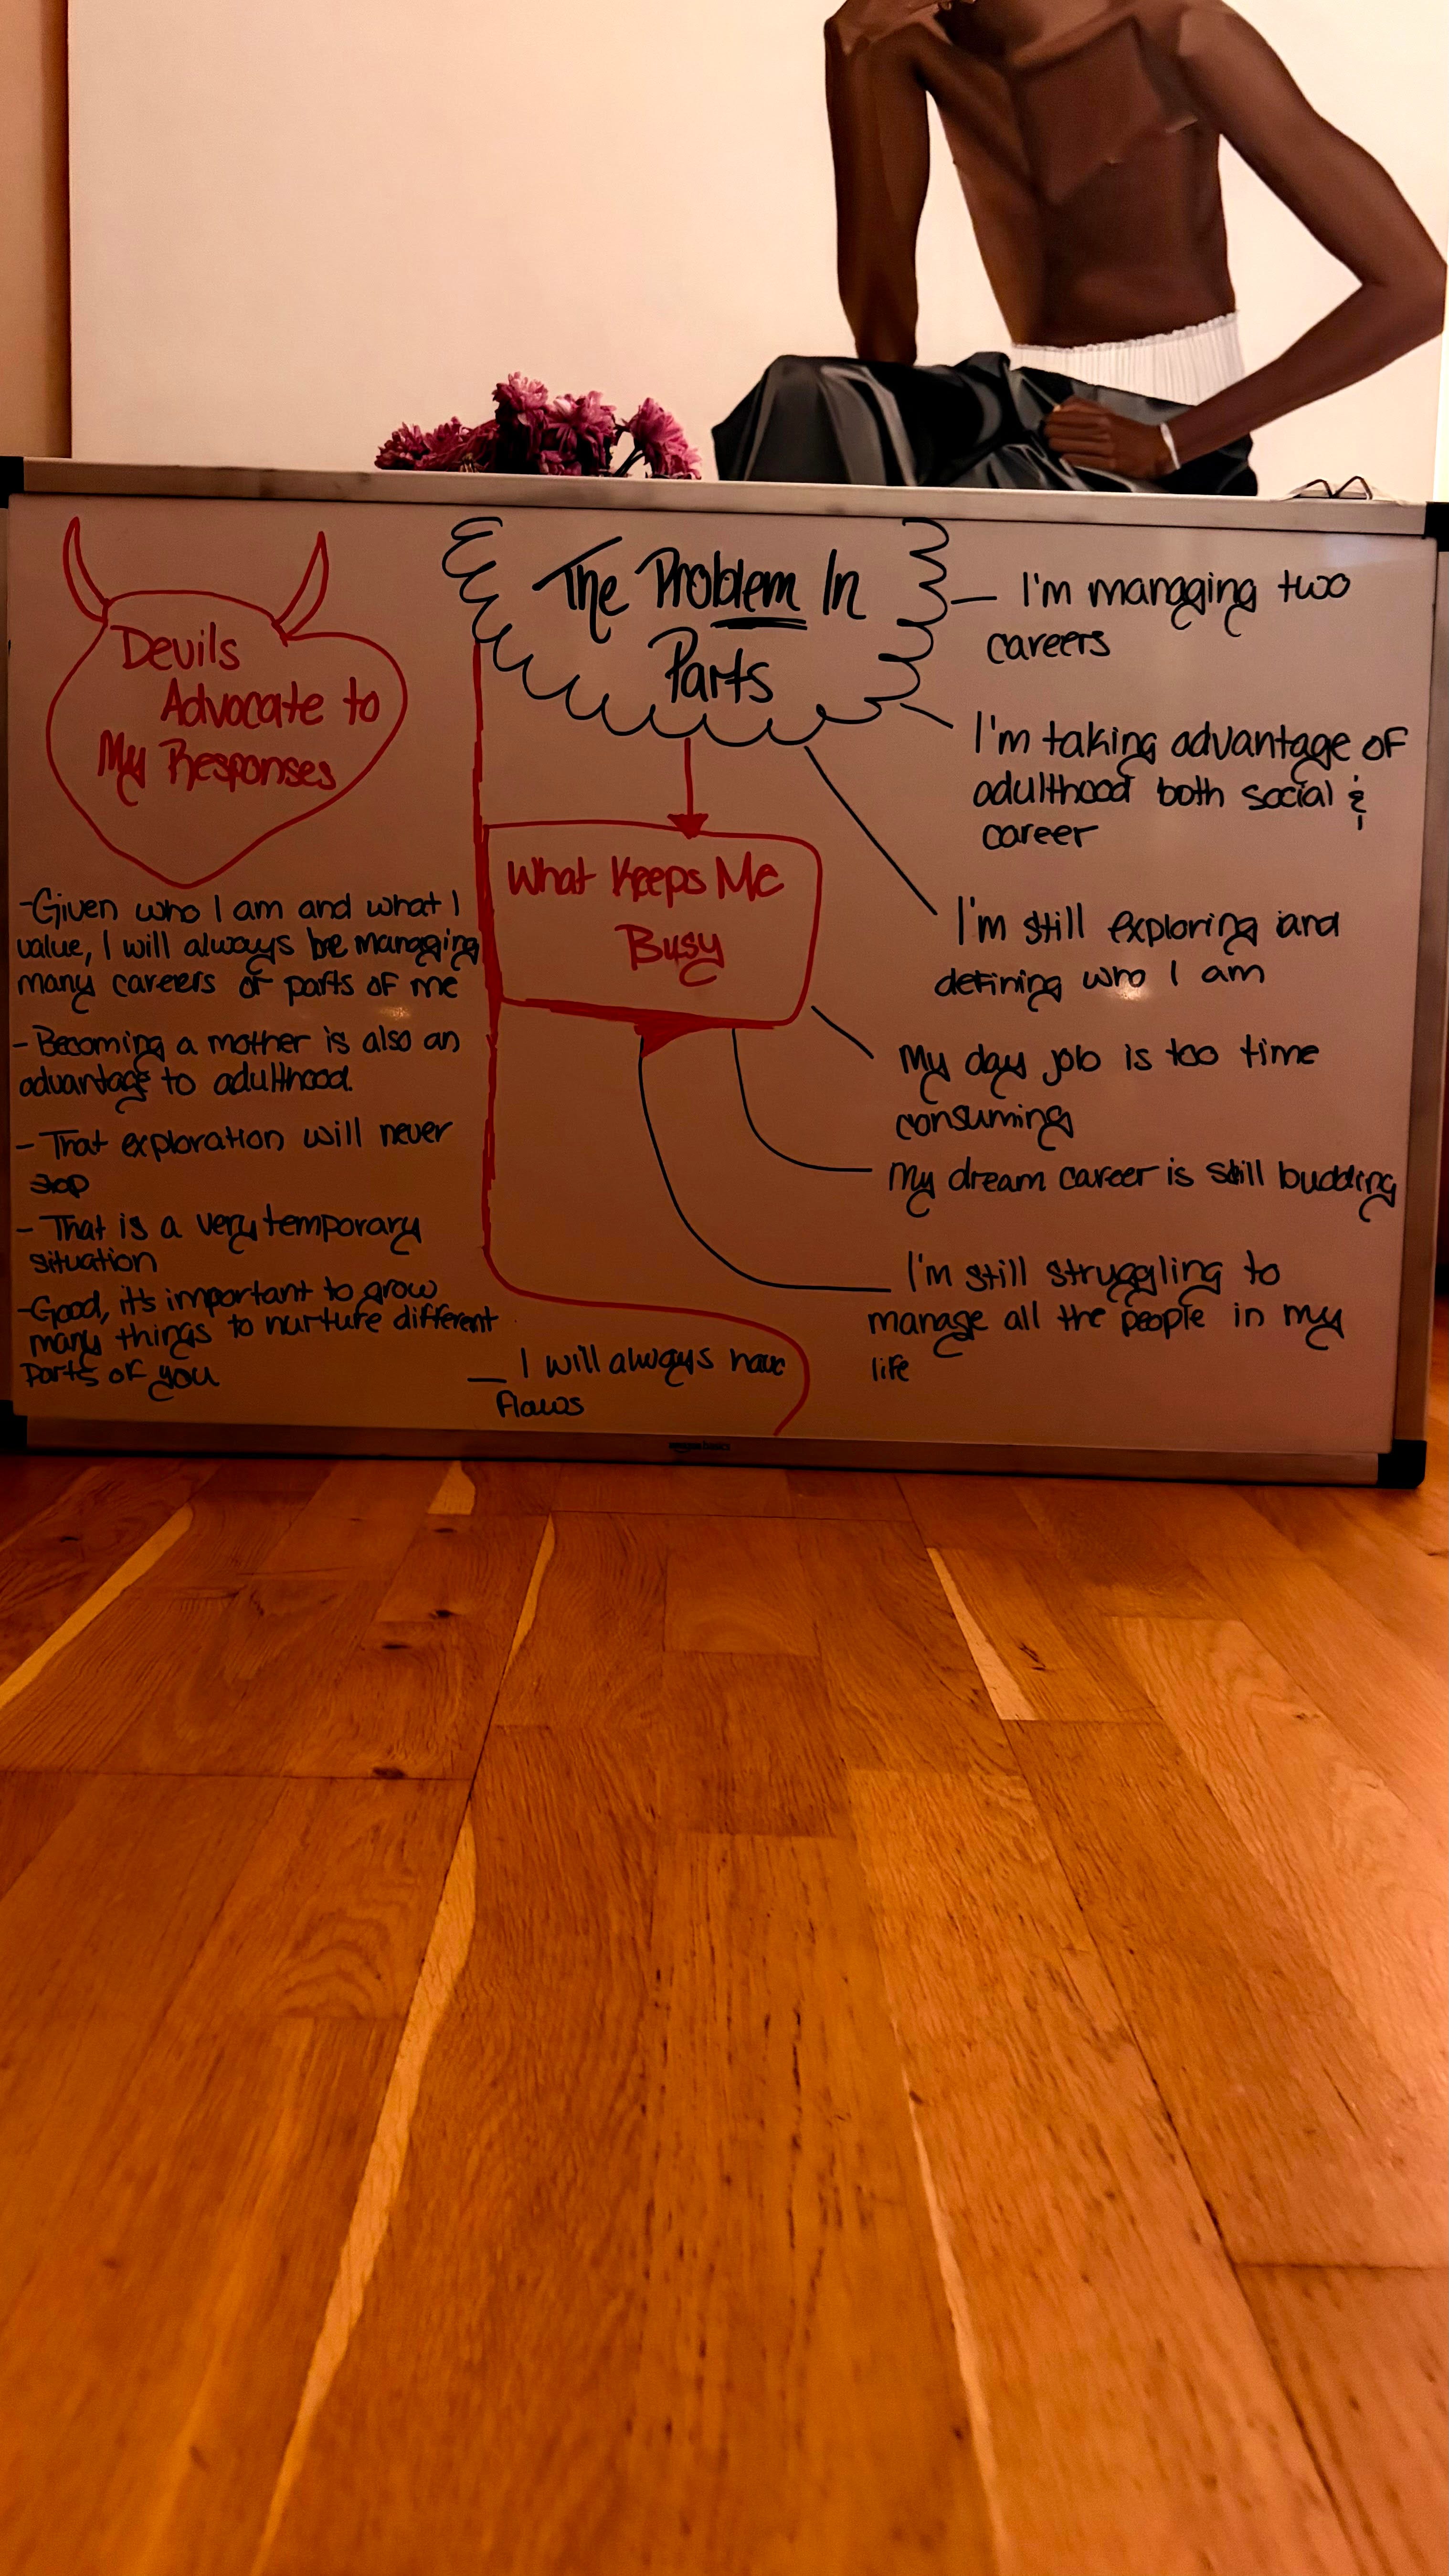 Devils
Advocate to
My Responses
-Given who I am and what I
value, I will always be managing
many careers or parts of me
- Becoming a mother is also an
advantage to adulthood.
- That exploration will never
stop
- That is a very temporary
situation
-Good, it's important to grow
many things to nurture different
parts of you
— I will always have
flaws
The Problem In
Parts
What Keeps Me
Busy
— I'm managing two
careers
I'm taking advantage of
adulthood both social &
career
I'm still exploring and
defining who I am
My day job is too time
consuming
My dream career is still budding
I'm still struggling to
manage all the people in my
life
amazon basics